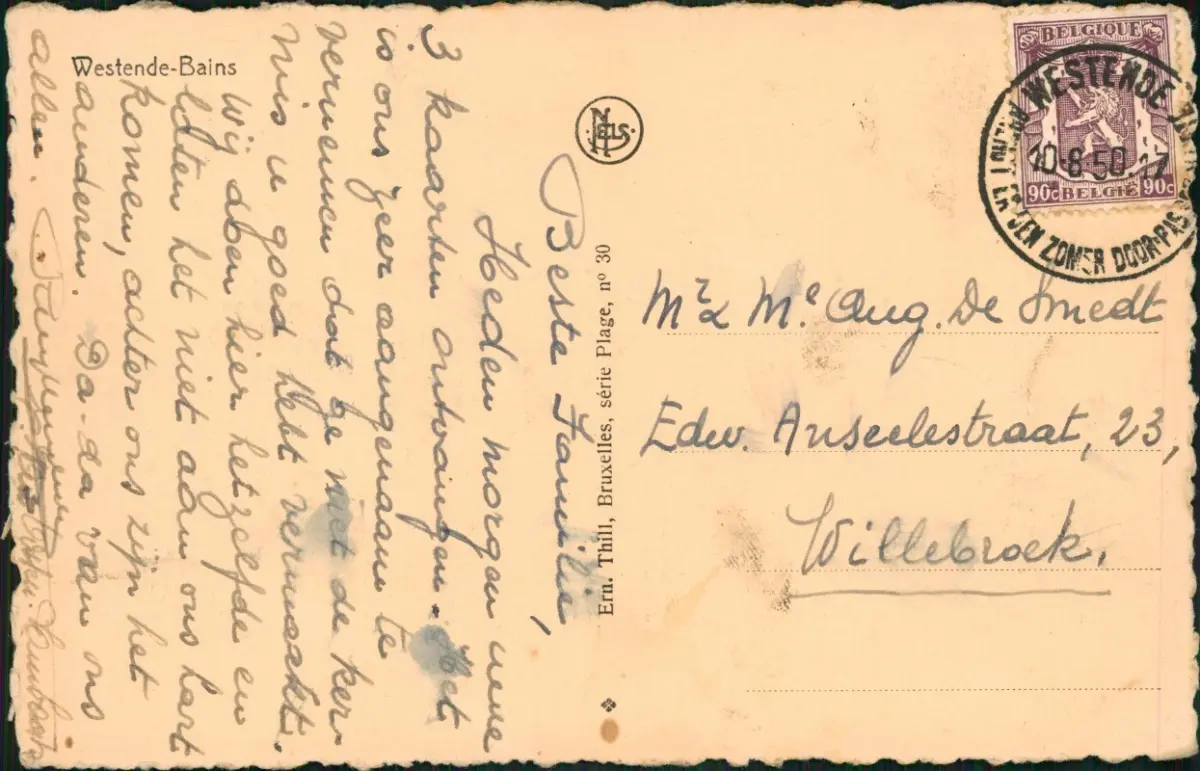 Westende-Bains
NELS
BELGIQUE
90c BELGIË 90c
WESTENDE
10-8-50.17
ZOMER DOOR
Ern. Thill, Bruxelles, série Plage, nº 30
Beste Familie,
Heden morgen uwe
3 kaarten ontvangen. Het
is ons zeer aangenaam te
vernemen dat ge met de ker-
mis u goed hebt vermaakt.
Wij doen hier hetzelfde en
laten het niet aan ons hart
komen, achter ons zijn het
anderen. Da-da van ons
allen.
Mr & Me Aug. De Smedt
Edw. Anseelestraat, 23,
Willebroek.